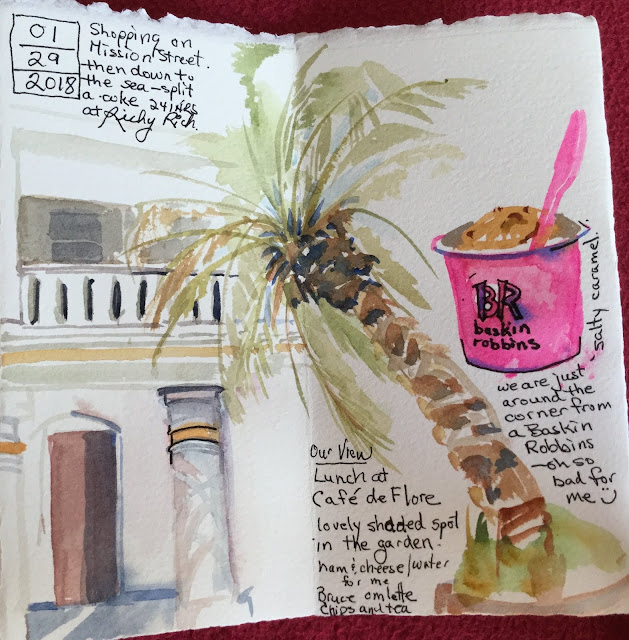 01
29
2018
Shopping on
Mission Street.
then down to
the sea-split
a coke 24
at Richy Rich.
BR
baskin
robbins
salty caramel.
we are just
around the
corner from
a Baskin
Robbins
-oh so
bad for
me
Our View
Lunch at
Café de Flore
lovely shaded spot
in the garden.
ham & cheese/water
for me
Bruce omlette
chips and tea